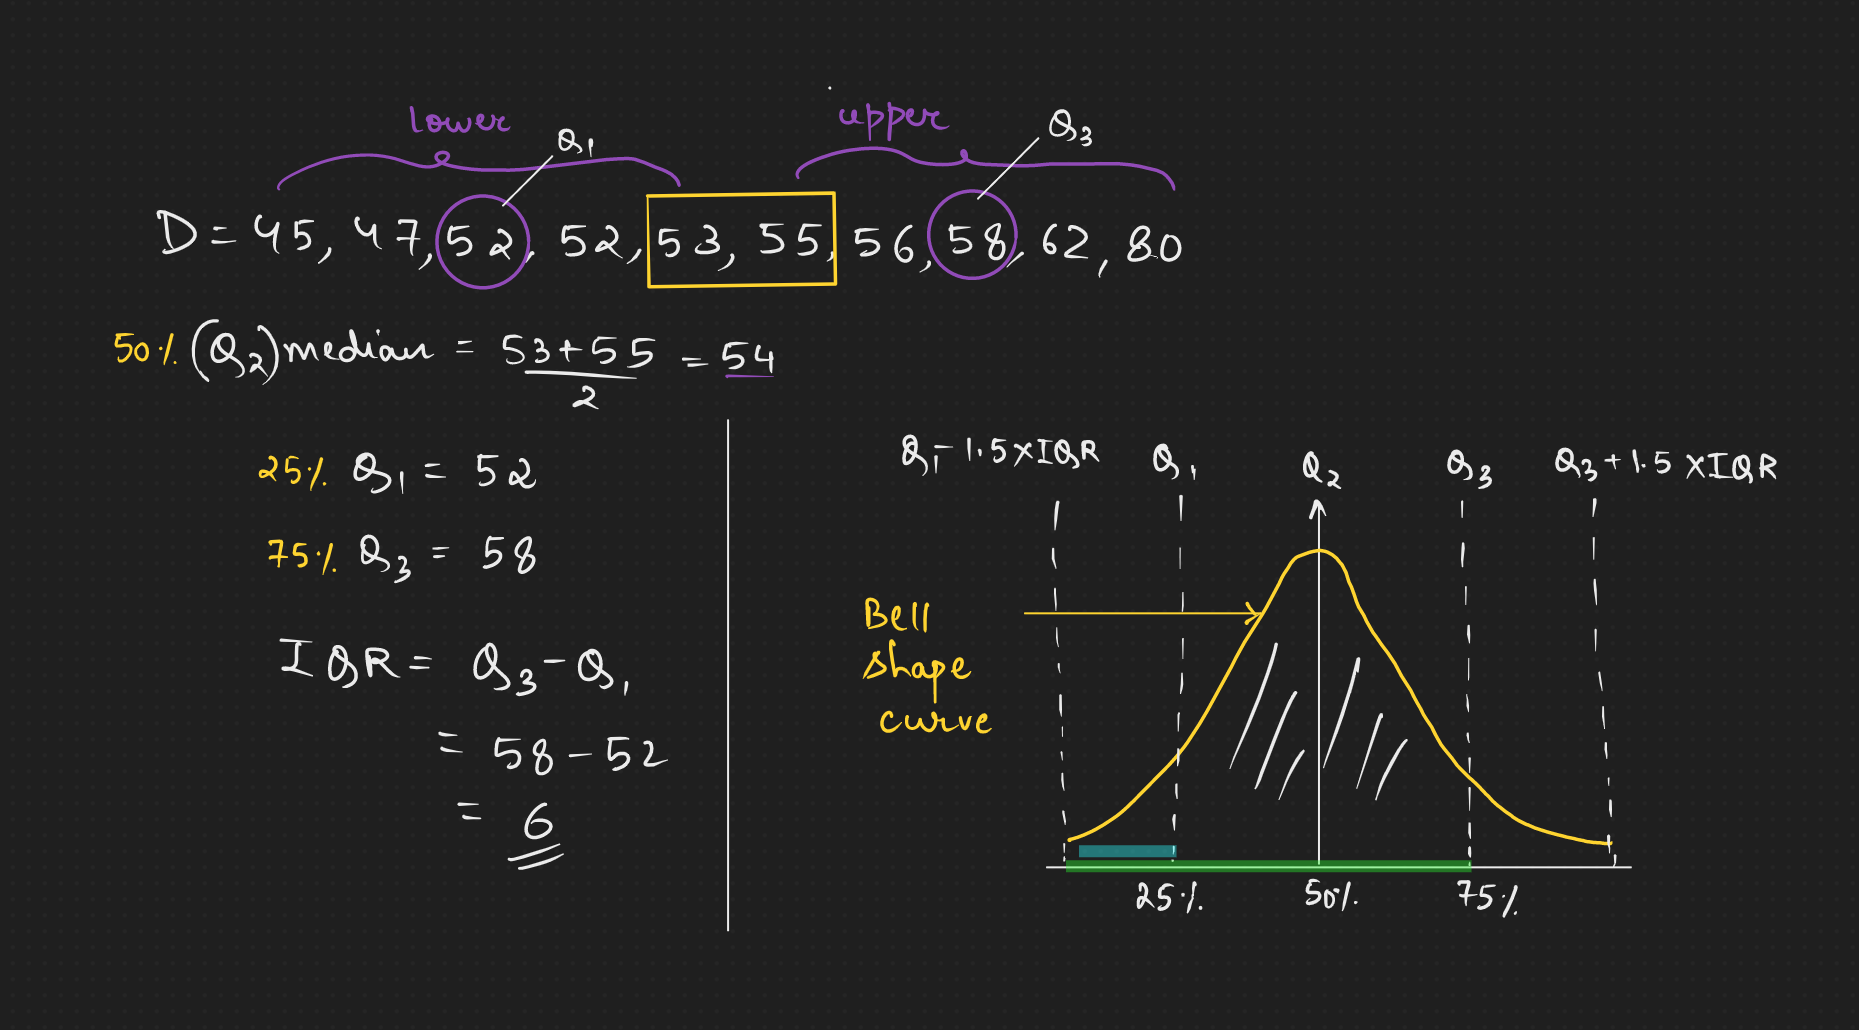 lower
upper
Q₁
Q₃
D = 45, 47, 52, 52, 53, 55, 56, 58, 62, 80
50% (Q₂) median = 53+55 / 2 = 54
25% Q₁ = 52
75% Q₃ = 58
IQR = Q₃ - Q₁
= 58 - 52
= 6
Q₁ - 1.5 × IQR
Q₁
Q₂
Q₃
Q₃ + 1.5 × IQR
Bell
shape
curve
25%
50%
75%